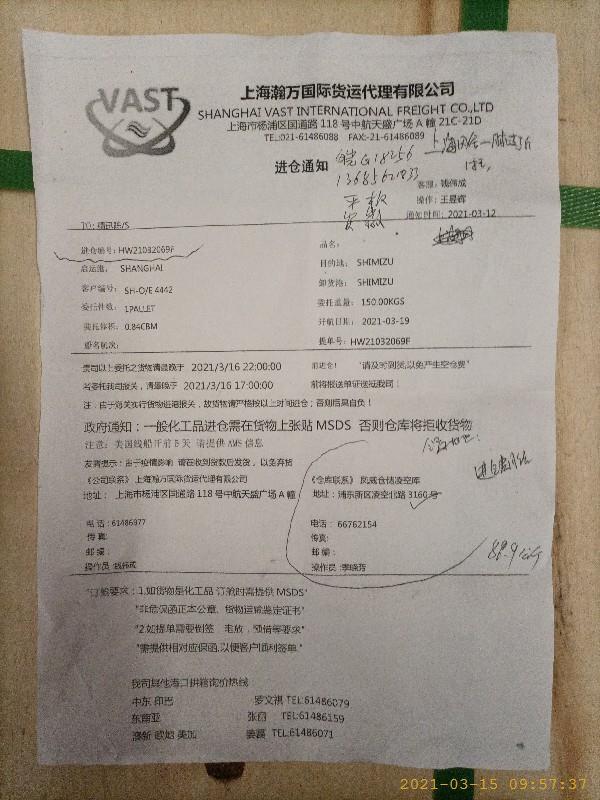 VAST
上海瀚万国际货运代理有限公司
SHANGHAI VAST INTERNATIONAL FREIGHT CO.,LTD
上海市杨浦区国道路 118 号中航天盛广场 A 幢 21C-21D
TEL:021-61486088 FAX:021-61486089
进仓通知
皖G18256
平板
客服:钱伟成
操作:王昱辉
通知时间:2021-03-12
进仓编号:HW21032069F
品名:
启运港: SHANGHAI
目的地: SHIMIZU
客户编号: SH-O/E 4442
卸货港: SHIMIZU
委托件数: 1PALLET
委托重量: 150.00KGS
委托体积: 0.84CBM
开航日期: 2021-03-19
船名航次:
提单号: HW21032069F
贵司以上委托之货物请最晚于 2021/3/16 22:00:00 前进仓! "请及时到货,以免产生空仓费"
若委托我司报关,请最晚于 2021/3/16 17:00:00 前将报关单证送抵我司!
注:由于海关实行货物进港报关,故货物请严格按以上时间进仓;否则后果自负!
政府通知:一般化工品进仓需在货物上张贴 MSDS 否则仓库将拒收货物
注意:美国线船开前 5 天 请提供 AMS 信息
友情提示:由于疫情影响 请在收到货款后发货,以免弃货
《公司联系》上海瀚万国际货运代理有限公司
地址: 上海市杨浦区国道路 118 号中航天盛广场 A 幢
《仓库联系》 凤威仓储凌空库
地址:浦东新区凌空北路 3160 号
电话:61486977
电话: 66762154
传真:
传真:
邮编:
邮编:
操作员:钱伟成
操作员:季晓芳
88.9公斤
"订舱要求:1.如货物是化工品 订舱时需提供 MSDS"
"非危保函正本公章、货物运输鉴定证书"
"2.如提单需要倒签 电放,预借等要求"
"需提供相对应保函,以便客户顺利签单."
我司其他港口拼箱询价热线:
中东 印巴 罗文祺 TEL:61486079
东南亚 张茵 TEL:61486159
澳新 欧地 美加 姜磊 TEL:61486071
2021-03-15 09:57:37